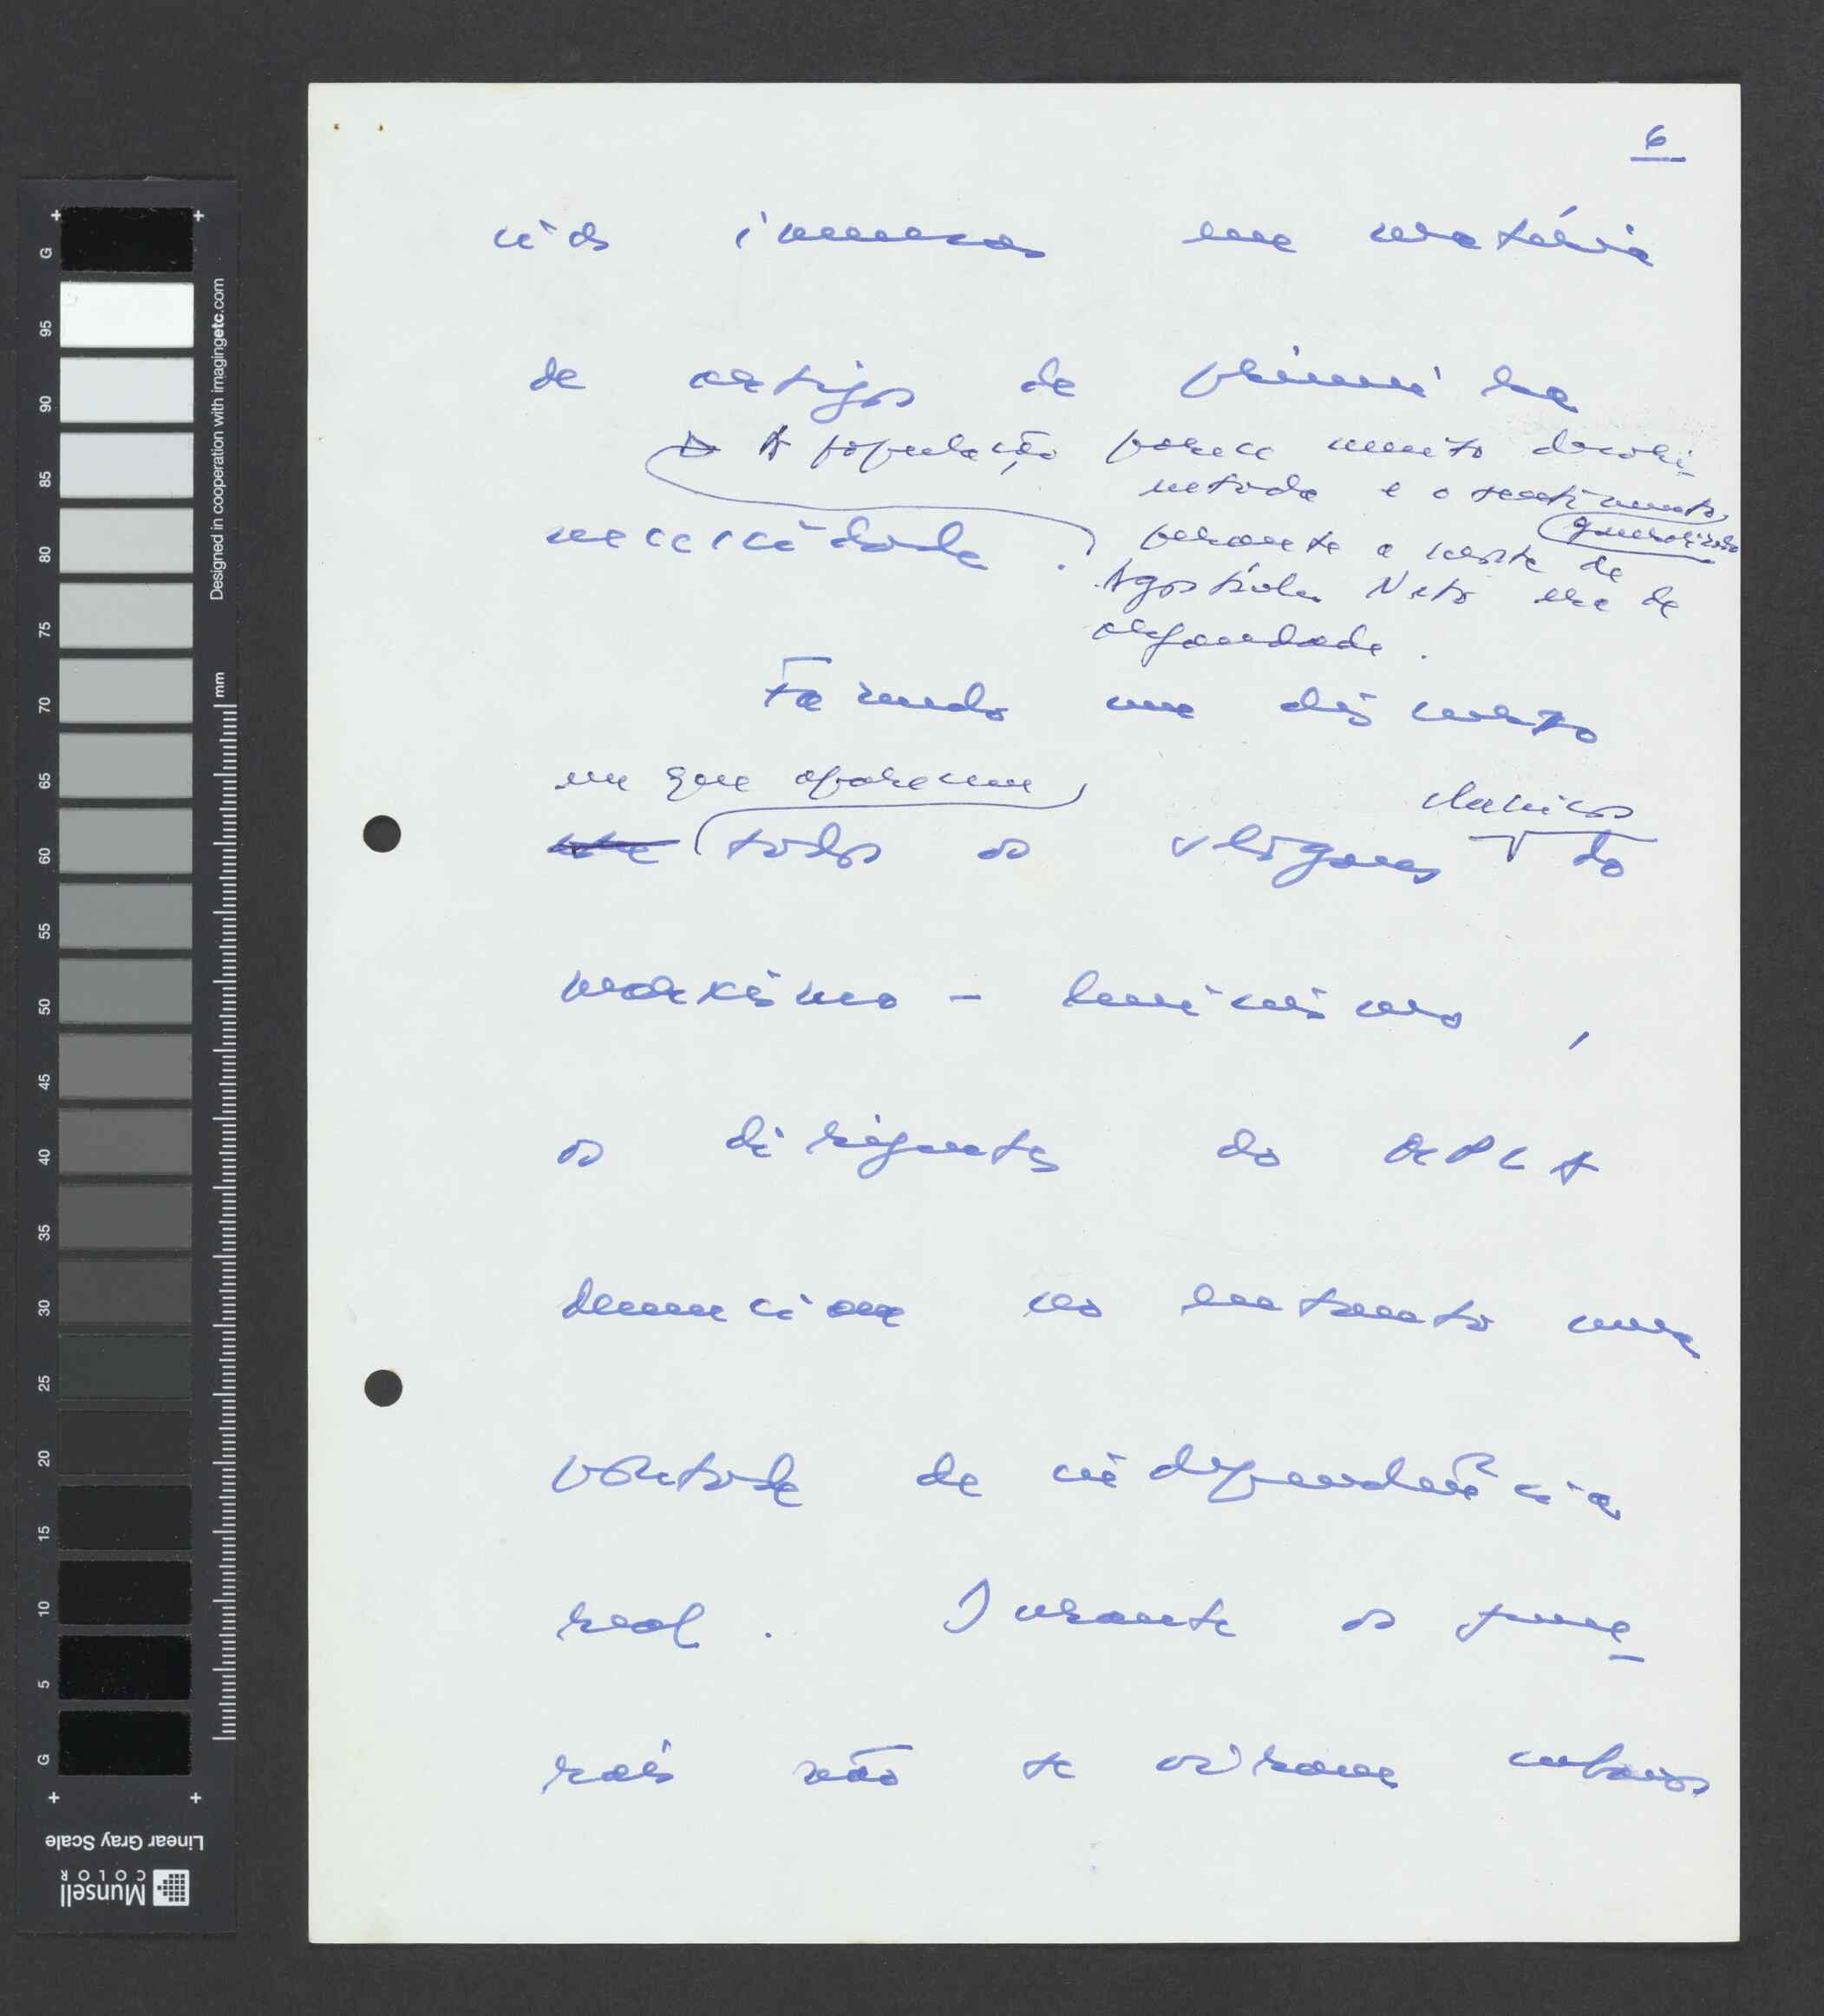 6
cias imensas em matéria
de artigos de primeira
A população parece muito desori-
entada e o sentimento
generalizado
necessidade.
perante a morte de
Agostinho Neto era de
orfandade.
Fazendo um discurso
em que aparecem
clássicos
todos os slogans do
marxismo-leninismo,
os dirigentes do MPLA
denunciam no entanto uma
vontade de independência
real. Durante os fune-
rais não se viram cubanos
G
95
90
85
80
75
70
65
60
55
50
45
40
35
30
25
20
15
10
5
G
mm
Designed in cooperation with imagingetc.com
Linear Gray Scale
Munsell
COLOR